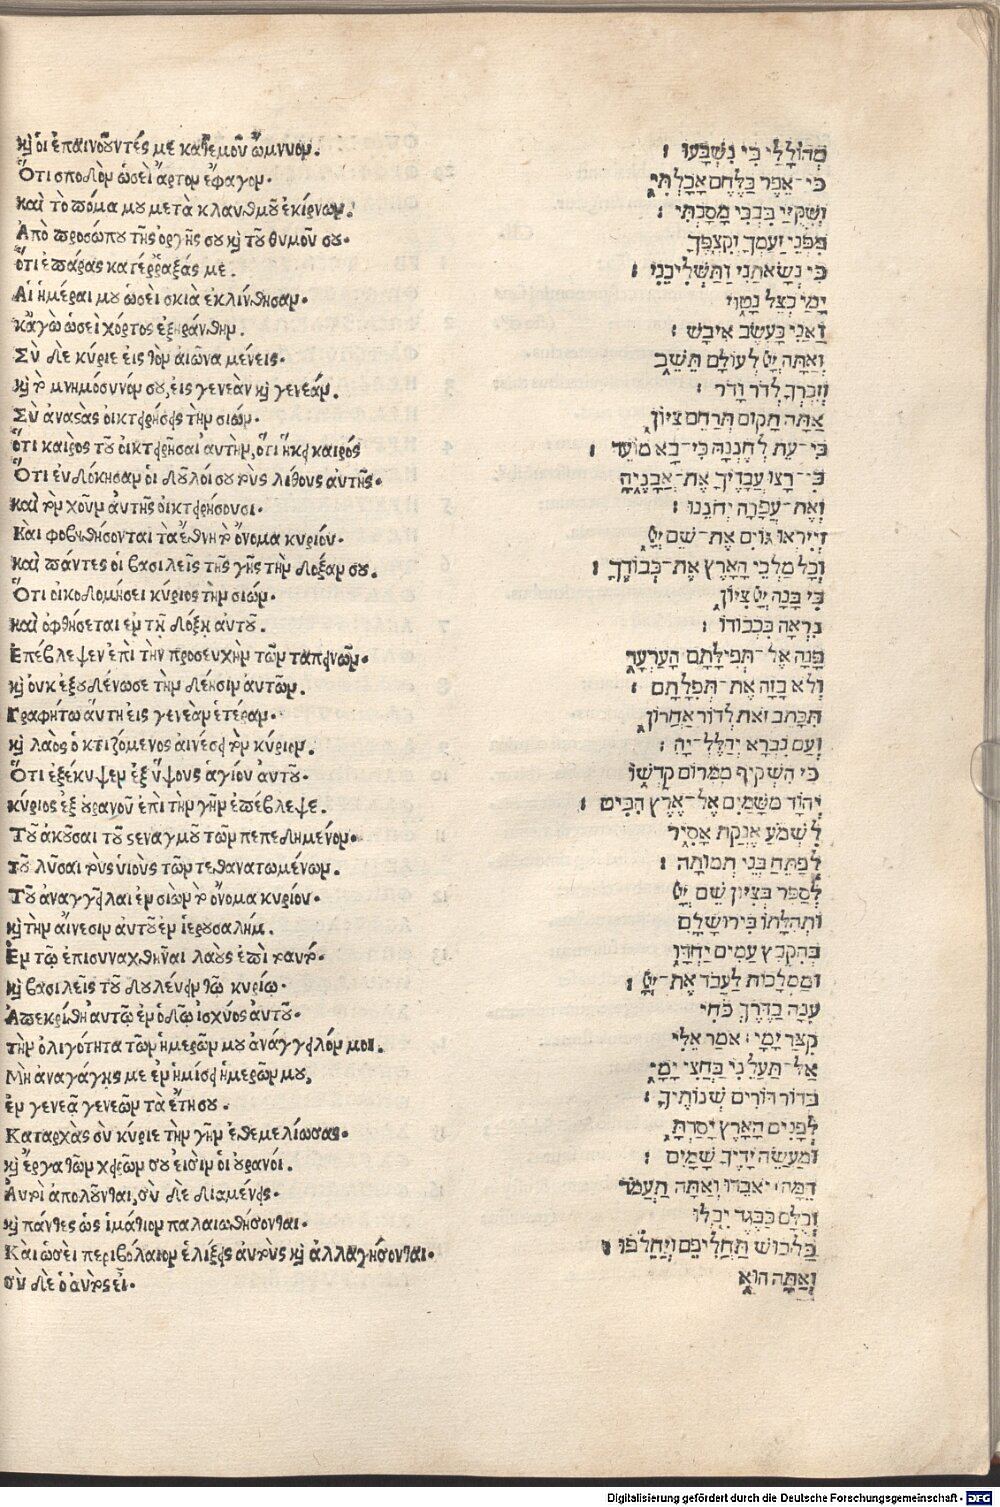 κỳ ὁι ἐπαινοῦντές με κατ' ἐμοῦ ὤμνυον.
Ὅτι σποδὸν ὡσεὶ ἄρτον ἔφαγον.
καὶ τὸ πόμα μου μετὰ κλαυθμοῦ ἐκίρνων.
Ἀπὸ προσώπου τῆς ὀργῆς σου κỳ τοῦ θυμοῦ σου.
ὅτι ἐπάρας κατέῤῥαξάς με.
Αἱ ἡμέραι μου ὡσεὶ σκιὰ ἐκλίνθησαν.
κἀγὼ ὡσεὶ χόρτος ἐξηράνθην.
Σὺ δὲ κύριε εἰς τὸν αἰῶνα μένεις.
κỳ τὸ μνημόσυνόν σου, εἰς γενεὰν κỳ γενεάν.
Σὺ ἀναστὰς οἰκτειρήσεις τὴν σιών.
ὅτι καιρὸς τοῦ οἰκτειρῆσαι αὐτὴν, ὅτι ἥκει καιρὸς
Ὅτι ἐυδόκησαν ὁι δοῦλοί σου τοὺς λίθους ἀυτῆς.
καὶ τὸν χοῦν ἀυτῆς ὀικτειρήσουσι.
Καὶ φοβηθήσονται τὰ ἔθνη τὸ ὄνομα κυρίου.
καὶ πάντες ὁι βασιλεῖς τῆς γῆς τὴν δόξαν σου.
Ὅτι ὀικοδομήσει κύριος τὴν σιών.
καὶ ὀφθήσεται ἐν τῇ δόξῃ ἀυτοῦ.
Ἐπέβλεψεν ἐπὶ τὴν προσευχὴν τῶν ταπεινῶν.
κỳ ὀυκ ἐξουδένωσε τὴν δέησιν ἀυτῶν.
Γραφήτω ἅυτη εἰς γενεὰν ἑτέραν.
κỳ λαὸς ὁ κτιζόμενος ἀινέσει τὸν κύριον.
Ὅτι ἐξέκυψεν ἐξ ὕψους ἁγίου ἀυτοῦ.
κύριος ἐξ ὀυρανοῦ ἐπὶ τὴν γῆν ἐπέβλεψε.
Τοῦ ἀκοῦσαι τοῦ στεναγμοῦ τῶν πεπεδημένων.
Τοῦ λῦσαι τοὺς ὑιοὺς τῶν τεθανατωμένων.
Τοῦ ἀναγγεῖλαι ἐν σιὼν τὸ ὄνομα κυρίου.
κỳ τὴν ἄινεσιν ἀυτοῦ ἐν ἱερουσαλήμ.
Ἐν τῷ ἐπισυναχθῆναι λαοὺς ἐπὶ τὸ αυτό.
κỳ βασιλεῖς τοῦ δουλέυειν τῷ κυρίῳ.
Ἀπεκρίθη ἀυτῷ ἐν ὁδῷ ἰσχύος ἀυτοῦ.
τὴν ὀλιγότητα τῶν ἡμερῶν μου ἀνάγγειλόν μοι.
Μὴ ἀναγάγῃς με ἐν ἡμίσει ἡμερῶν μου,
ἐν γενεᾷ γενεῶν τὰ ἔτη σου.
Καταρχὰς σὺ κύριε τὴν γῆν ἐθεμελίωσας.
κỳ ἔργα τῶν χειρῶν σου εἰσὶν ὁι ὀυρανοί.
Ἀυτοὶ ἀπολοῦνται, σὺ δὲ διαμένεις.
κỳ πάντες ὡς ἱμάτιον παλαιωθήσονται.
Κὰι ὡσεὶ περιβόλαιον ἑλίξεις ἀυτοὺς κỳ ἀλλαγήσονται.
σὺ δὲ ὁ ἀυτὸς εἶ.
מְהוֹלָלַי בִּי נִשְׁבָּעוּ ׃
כִּי־אֵפֶר כַּלֶּחֶם אָכָלְתִּי
וְשִׁקֻּוַי בִּבְכִי מָסָכְתִּי ׃
מִפְּנֵי זַעַמְךָ וְקִצְפֶּךָ
כִּי נְשָׂאתַנִי וַתַּשְׁלִיכֵנִי ׃
יָמַי כְּצֵל נָטוּי
וַאֲנִי כָּעֵשֶׂב אִיבָשׁ ׃
וְאַתָּה יְיָ לְעוֹלָם תֵּשֵׁב
וְזִכְרְךָ לְדֹר וָדֹר ׃
אַתָּה תָקוּם תְּרַחֵם צִיּוֹן
כִּי־עֵת לְחֶנְנָהּ כִּי־בָא מוֹעֵד ׃
כִּי־רָצוּ עֲבָדֶיךָ אֶת־אֲבָנֶיהָ
וְאֶת־עֲפָרָהּ יְחֹנֵנוּ ׃
וְיִירְאוּ גוֹיִם אֶת־שֵׁם יְיָ
וְכָל מַלְכֵי הָאָרֶץ אֶת־כְּבוֹדֶךָ ׃
כִּי בָּנָה יְיָ צִיּוֹן
נִרְאָה בִּכְבוֹדוֹ ׃
פָּנָה אֶל־תְּפִילָּתם הָעַרְעָר
וְלֹא בָזָה אֶת־תְּפִלָּתָם ׃
תִּכָּתֵב זֹאת לְדוֹר אַחֲרוֹן
וְעַם נִבְרָא יְהַלֶּל־יָהּ ׃
כִּי הִשְׁקִיף מִמְּרוֹם קָדְשׁוֹ
יְהוָֹד מִשָּׁמַיִם אֶל־אֶרֶץ הִבִּיט ׃
לִשְׁמֹעַ אֶנְקַת אָסִיר
לְפַתֵּחַ בְּנֵי תְמוּתָה ׃
לְסַפֵּר בְּצִיּוֹן שֵׁם יְיָ
וּתְהִלָּתוֹ בִּירוּשָׁלָם
בְּהִקָּבֵץ עַמִּים יַחְדָּו
וּמַמְלָכוֹת לַעֲבֹד אֶת־יְיָ ׃
עִנָּה בַדֶּרֶךְ כֹּחִי
קִצַּר יָמָי ׃ אֹמַר אֵלִי
אַל־תַּעֲלֵנִי בַּחֲצִי יָמָי
בְּדוֹר דּוֹרִים שְׁנוֹתֶיךָ ׃
לְפָנִים הָאָרֶץ יָסַדְתָּ
וּמַעֲשֵׂה יָדֶיךָ שָׁמָיִם ׃
הֵמָּה יֹאבֵדוּ וְאַתָּה תַעֲמֹד
וְכֻלָּם כַּבֶּגֶד יִבְלוּ
כַּלְּבוּשׁ תַּחֲלִיפֵם וְיַחֲלֹפוּ ׃
וְאַתָּה הוּא
Digitalisierung gefördert durch die Deutsche Forschungsgemeinschaft - DFG